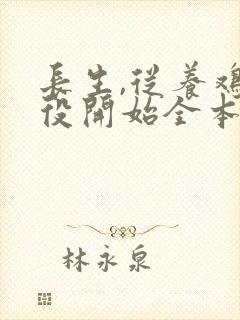 長生,從養鸡
役開始全本
林永泉